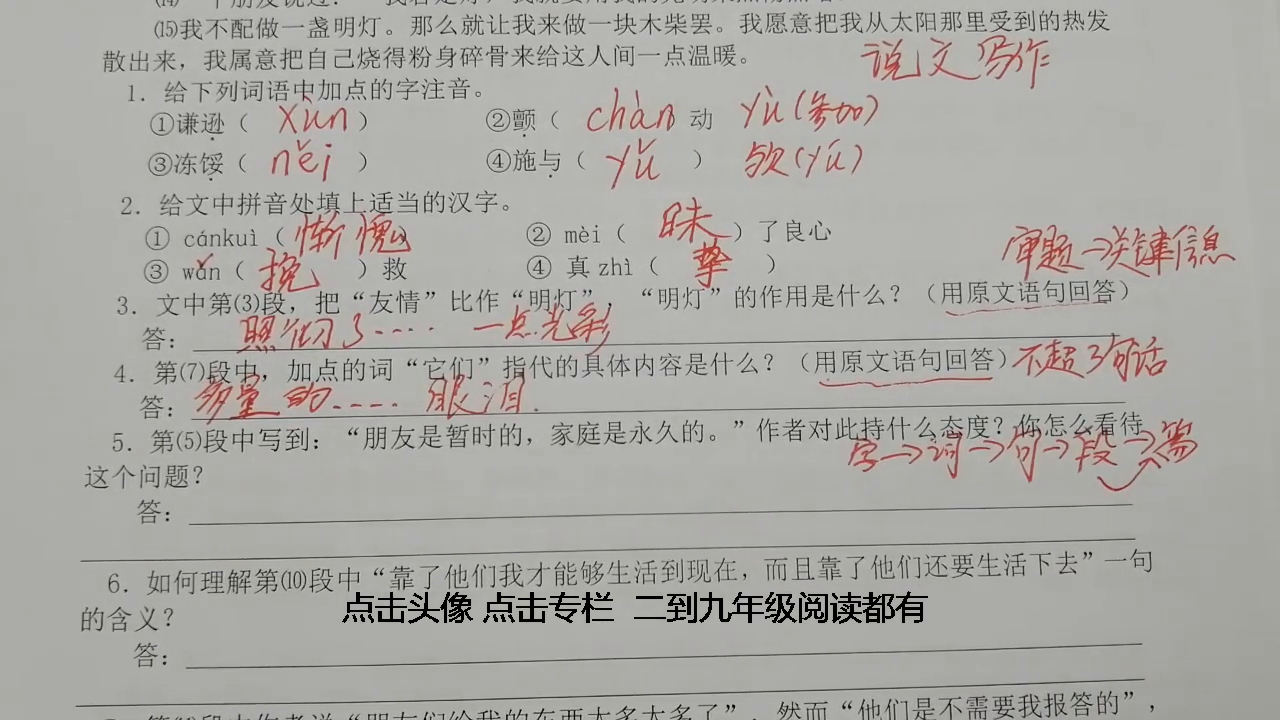 ⒂我不配做一盏明灯。那么就让我来做一块木柴罢。我愿意把我从太阳那里受到的热发
散出来，我属意把自己烧得粉身碎骨来给这人间一点温暖。
说文写作
1．给下列词语中加点的字注音。
①谦逊（ xùn ） ②颤（ chàn 动 yù（参加）
③冻馁（ něi ） ④施与（ yǔ ） 欤（yú）
2．给文中拼音处填上适当的汉字。
① cánkuì（ 惭愧 ② mèi（ 昧 ）了良心
③ wǎn（ 挽 ）救 ④ 真 zhì（ 挚 ）
审题→关键信息
3．文中第⑶段，把“友情”比作“明灯”，“明灯”的作用是什么？（用原文语句回答）
答： 照彻了…… 一点光彩
4．第⑺段中，加点的词“它们”指代的具体内容是什么？（用原文语句回答）不超3句话
答： 多量的…… 眼泪．
5．第⑸段中写到：“朋友是暂时的，家庭是永久的。”作者对此持什么态度？你怎么看待
字→词→句→段→篇
这个问题？
答：
6．如何理解第⑽段中“靠了他们我才能够生活到现在，而且靠了他们还要生活下去”一句
的含义？
点击头像 点击专栏 二到九年级阅读都有
答：
段中作者说“朋友们给我的东西太多太多了”，然而“他们是不需要我报答的”，